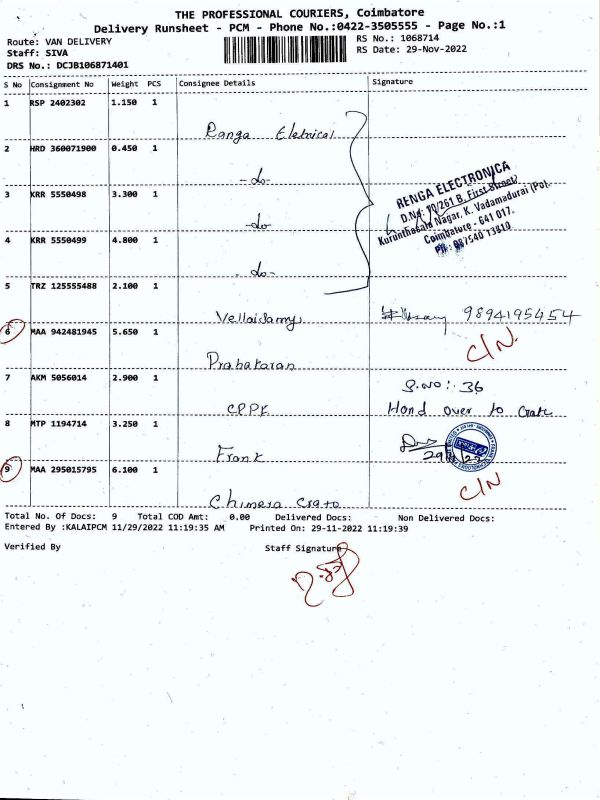 THE PROFESSIONAL COURIERS, Coimbatore
Delivery Runsheet - PCM - Phone No.:0422-3505555 - Page No.:1
Route: VAN DELIVERY
RS No.: 1068714
Staff: SIVA
RS Date: 29-Nov-2022
DRS No.: DCJB106871401
S No Consignment No Weight PCS Consignee Details Signature
1 RSP 2402302 1.150 1
Ranga Eletrical
2 HRD 360071900 0.450 1
-do-
RENGA ELECTRONICA
D.No: 10/261 B, First Street
Kurunthasala Nagar, K. Vadamadurai (Po),
Coimbatore - 641 017.
Ph: 087540 13810
3 KRR 5550498 3.300 1
-do-
4 KRR 5550499 4.800 1
-do-
5 TRZ 125555488 2.100 1
Vellaidamy 9894195454
6 MAA 942481945 5.650 1
C/N.
Prabakaran
7 AKM 5056014 2.900 1
S.NO: 36
CPPK Hond over to Crate
8 MTP 1194714 3.250 1
Frank
9 MAA 295015795 6.100 1
C/N
Chimera crato
Total No. Of Docs: 9 Total COD Amt: 0.00 Delivered Docs: Non Delivered Docs:
Entered By :KALAIPCM 11/29/2022 11:19:35 AM Printed On: 29-11-2022 11:19:39
Verified By Staff Signature